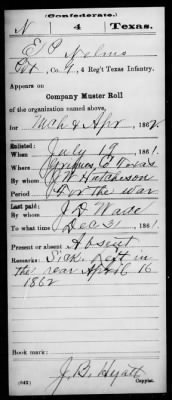 (Confederate.)
N 4 Texas.
E P Nelms
Pvt, Co. G, 4 Reg't Texas Infantry.
Appears on
Company Muster Roll
of the organization named above,
for Mch & Apr, 1862.
Enlisted:
When July 19, 1861.
Where Grimes Co Texas
By whom J W Hutcheson
Period For the war
Last paid:
By whom J D Wade
To what time Dec 31, 1861.
Present or absent Absent
Remarks: Sick left in
the rear April 16
1862
Book mark:
J. B. Hyatt
(642) Copyist.